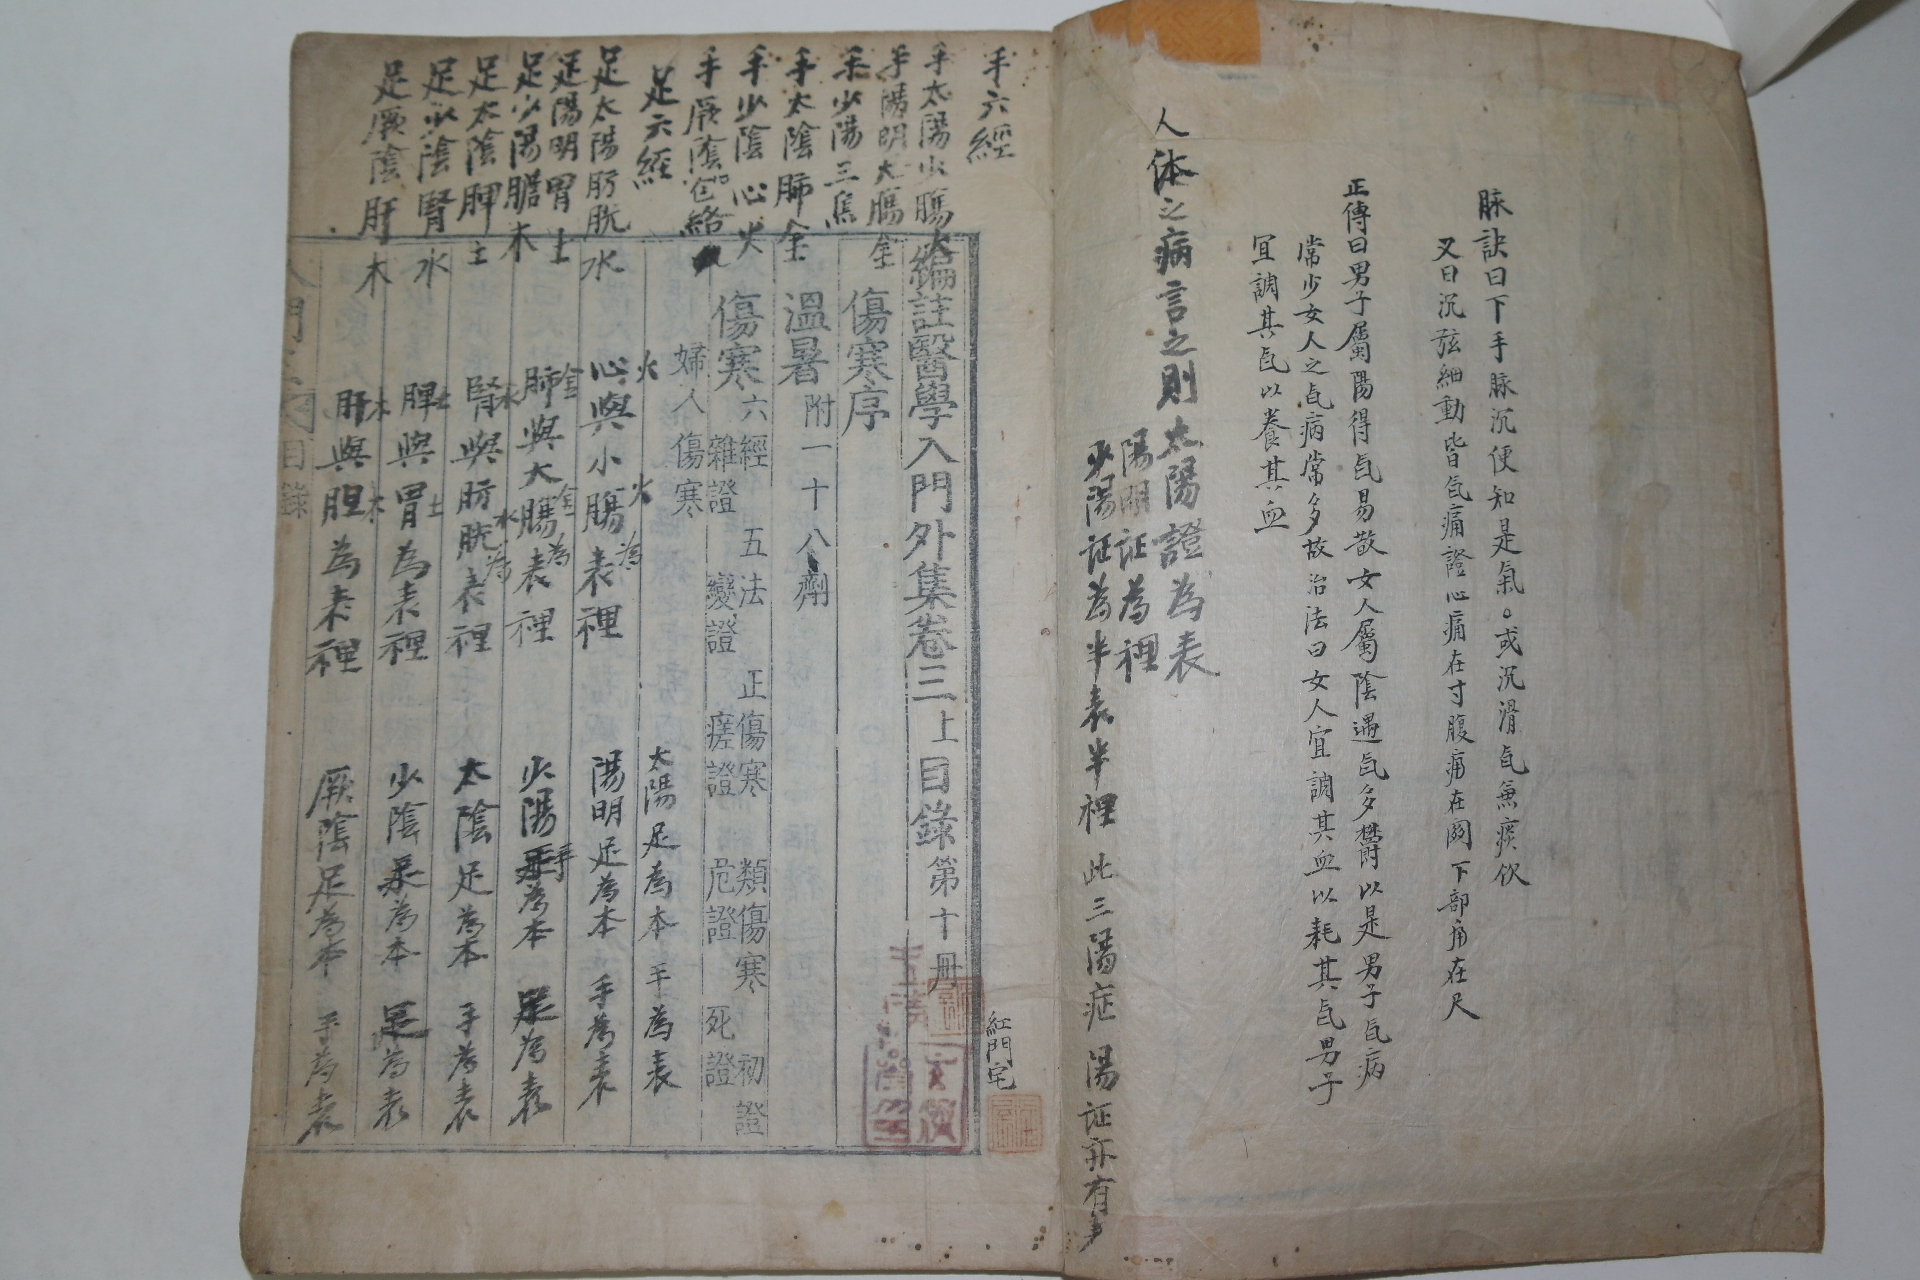 脉訣曰下手脉沉便知是氣。或沉滑气兼痰饮
又曰沉弦細動皆气痛證心痛在寸腹痛在関下部角在尺
正傳曰男子屬陽得气易散女人屬陰遇气多欝以是男子气病
常少女人之气病常多故治法曰女人宜調其血以耗其气男子
宜調其气以養其血
人体之病言之則太陽證為表
陽明证為裡
少陽证為半表半裡此三陽症陽证亦有
手六經
手太陽少膓火
手陽明大膓金
手少陽三焦
手太陰肺金
手少陰心火
手厥陰包絡
足六經
足太陽膀胱水
足陽明胃土
足少陽膽木
足太陰脾土
足少陰腎水
足厥陰肝木
編註醫學入門外集卷三上目錄第十冊
紅門宅
傷寒序
溫暑附一十八劑
傷寒六經 五法 正傷寒 類傷寒 初證
雜證 變證 瘥證 危證 死證
婦人傷寒
太陽足為本手為表
火心與小膓火為表裡
陽明足為本手為表
金肺與大膓金為表裡
少陽手為本足為表
水腎與膀胱水為表裡
太陰足為本手為表
土脾與胃土為表裡
少陰手為本足為表
木肝與胆木為表裡
厥陰足為本手為表